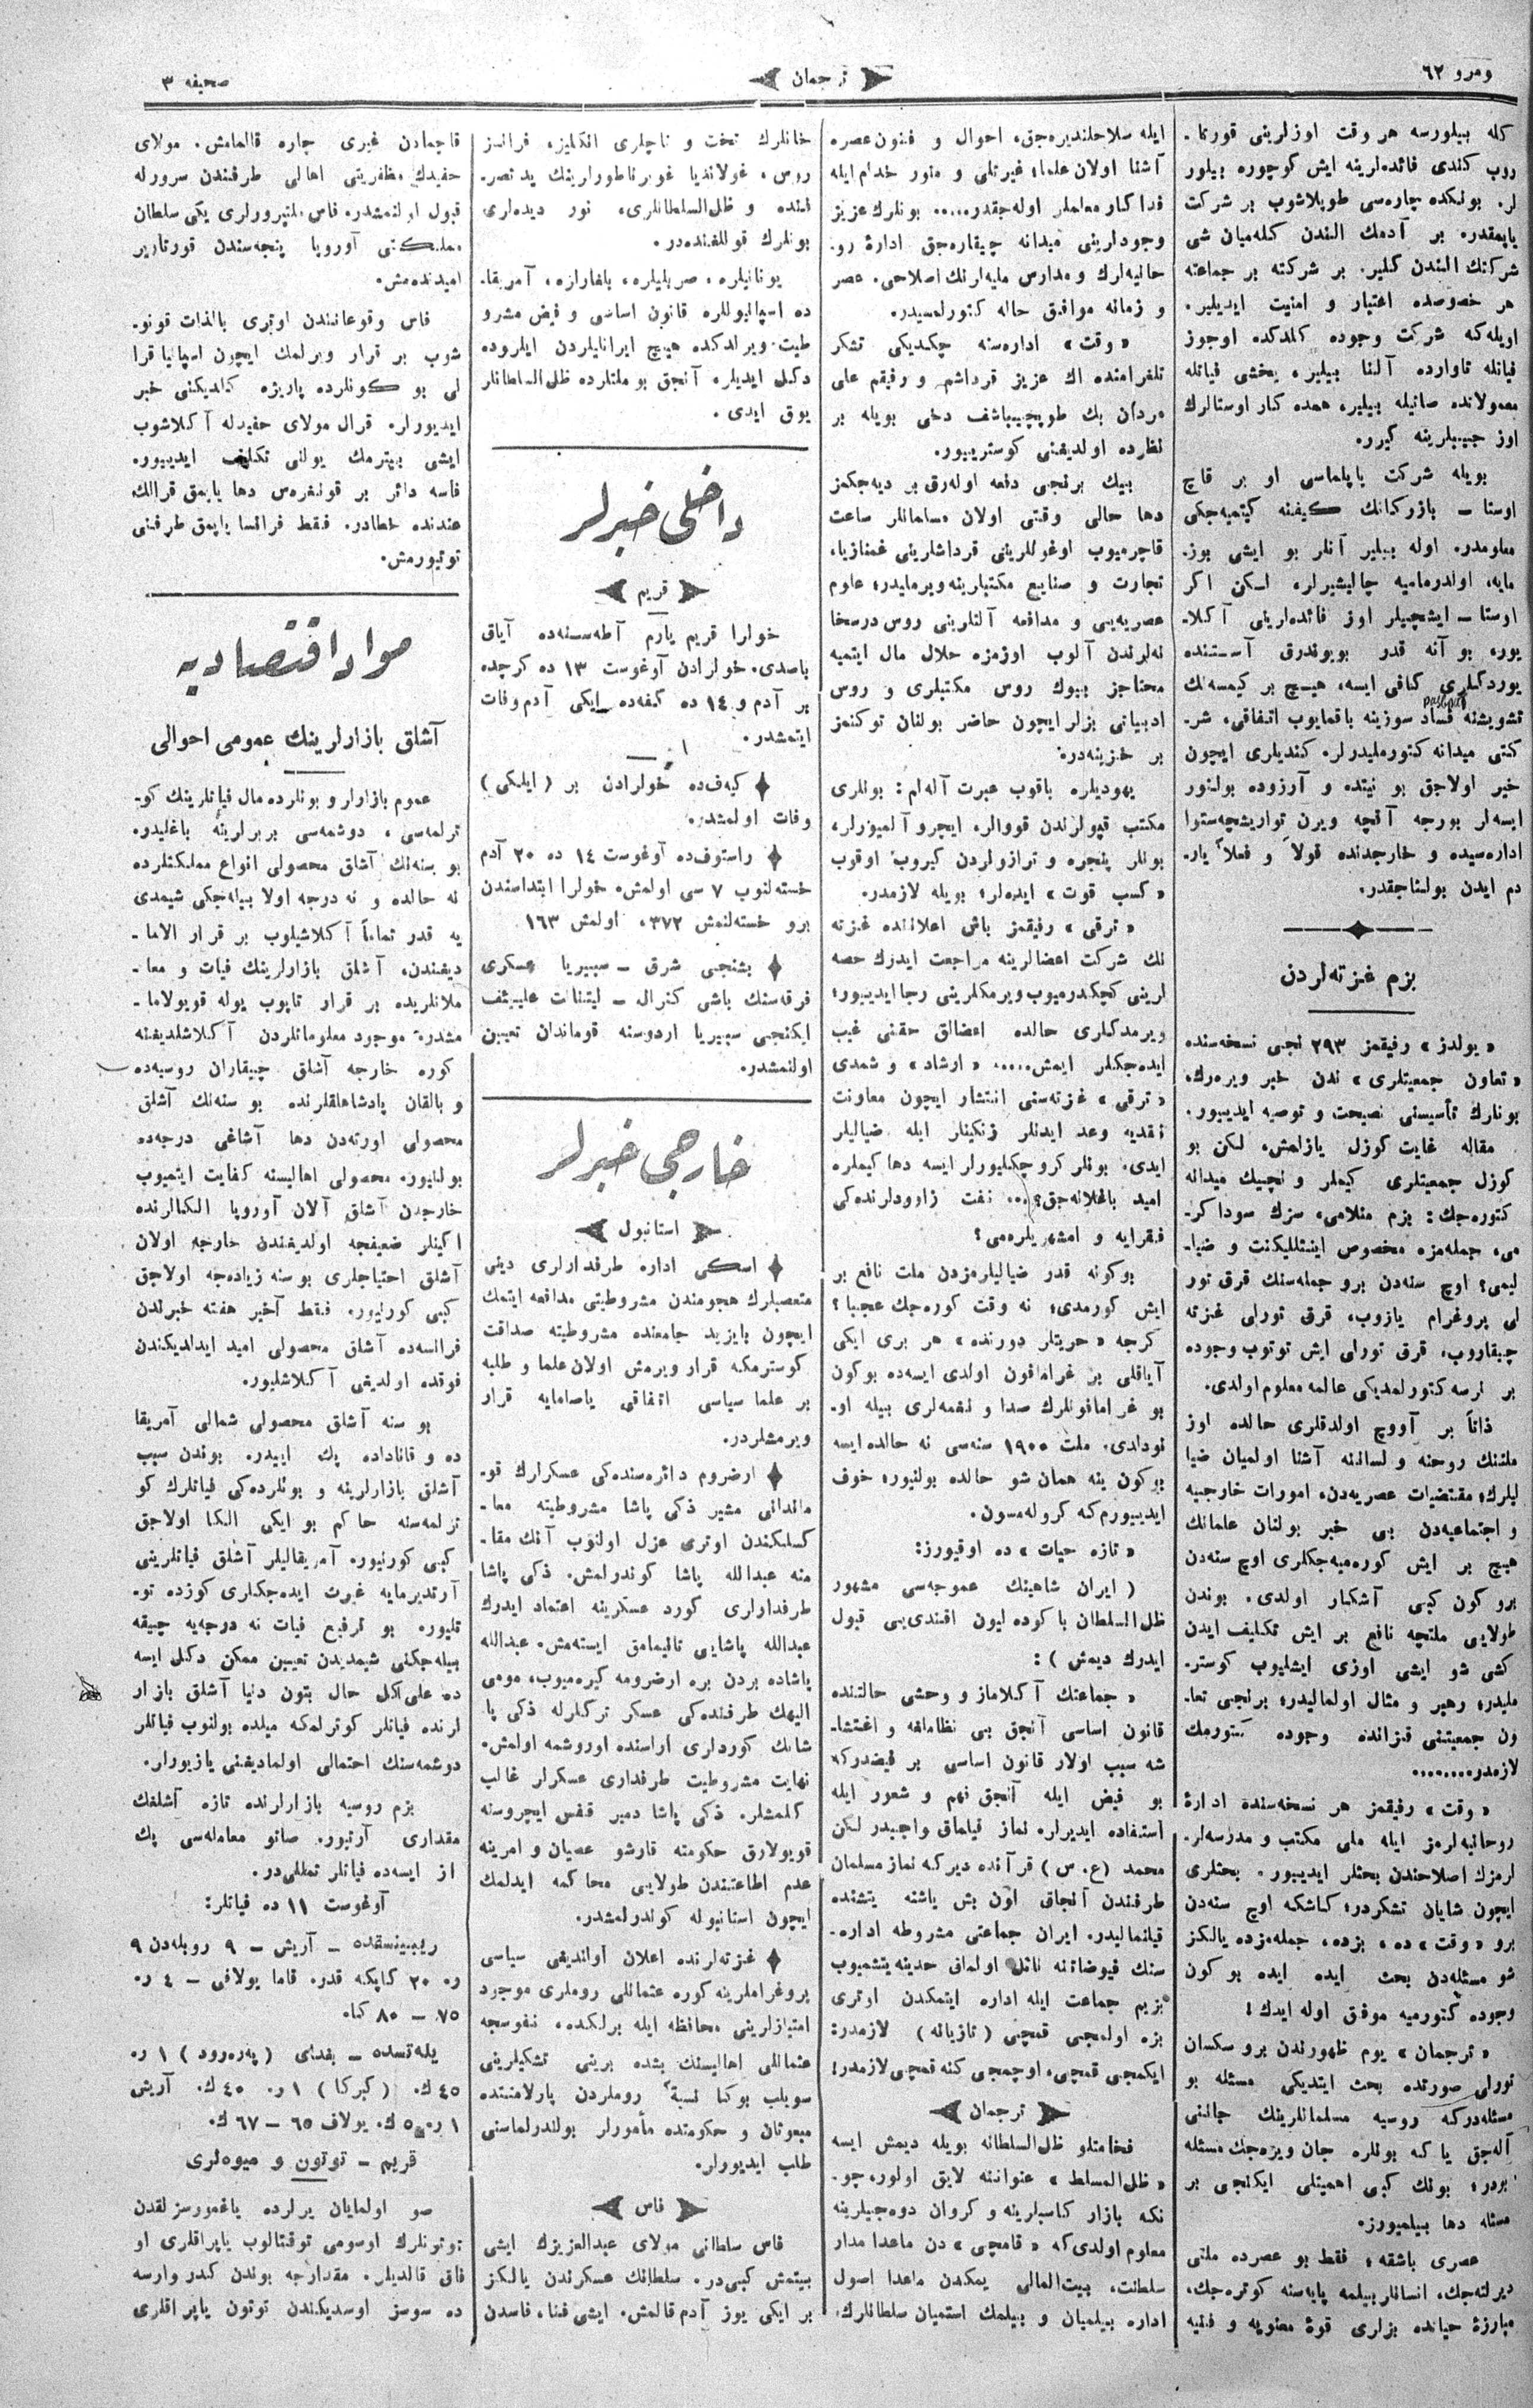 ومرو ٦٢
ترجمان
صحيفه ٣
كله بيلورسه هر وقت اوزلرينی قورتا ـ
روب كندی فائده‌لرينه ايش كوچوره بيلور
لر. بونكده چاره‌سی طوپلاشوب بر شركت
ياپمقدر. بر آدمك الندن كله‌ميان شی
شركتك الندن كلير. بر شركته بر جماعته
هر خصوصده اعتبار و امنيت ايديلير.
اويله‌كه شركت وجوده كلدكده اوجوز
فياتله تاوارده آلنا بيلير، يخشی فياتله
معمولاتده صاتيله بيلير، همده كار اوستالرك
اوز جيبلرينه كيرر.
بويله شركت ياپلماسی او بر قاچ
اوستا ـ بازركانك كيفنه كيتميه‌جكی
معلومدر. اوله بيلير آنلر بو ايشی بوز ـ
مايه، اولدرماميه چاليشيرلر، لسكن اكر
اوستا ـ ايشچيلر اوز فائده‌لرينی آكلا ـ
يور، بو آنه قدر بويوندرق آستنده
يوردكلری كافی ايسه، هيچ بر كيمسه‌نك
تشويشنه فساد سوزينه باقمايوب اتفاقی، شر ـ
كتی ميدانه كتورمليدرلر. كنديلری ايچون
خير اولاجق بو نيتده و آرزوده بولنور
ايسه‌لر بورجه آقچه ويرن تواريشچه‌ستوا
اداره‌سيده و خارجدنده قولاً و فعلاً يار ـ
دم ايدن بولناجقدر.
بزم غزته‌لردن
« يولدز » رفيقمز ٢٩٣ نجی نسخه‌سنده
« تعاون جمعيتلری » ندن خبر ويره‌رك،
بونلرك تأسيسنی نصيحت و توصيه ايدييور.
مقاله غايت كوزل يازلمش، لكن بو
كوزل جمعيتلری كيملر و نچيك ميدانه
كتوره‌جك: بزم متلامی، سزك سوداكر ـ
می، جمله‌مزه مخصوص اينتلليكنت و ضيا ـ
ليمی؟ اوچ سنه‌دن برو جمله‌سنك قرق تور
لی پروغرام يازوب، قرق تورلی غزته
چيقاروب، قرق تورلی ايش توتوب وجوده
بر نرسه كتورلمديكی عالمه معلوم اولدی.
ذاتاً بر آووچ اولدقلری حالده اوز
ملتنك روحنه و لساننه آشنا اولميان ضيا
ليلرك؛ مقتضيات عصريه‌دن، امورات خارجيه
و اجتماعيه‌دن بی خبر بولنان علمانك
هيچ بر ايش كوره‌ميه‌جكلری اوچ سنه‌دن
برو كون كبی آشكار اولدی. بوندن
طولايی ملتچه نافع بر ايش تكليف ايدن
كشی شو ايشی اوزی ايشليوب كوستر ـ
مليدر؛ رهبر و مثال اولماليدر؛ برنجی تعا ـ
ون جمعيتنی قزانده وجوده كتورمك
لازمدر........
« وقت » رفيقمز هر نسخه‌سنده ادارهٔ
روحانيه‌لرمز ايله ملی مكتب و مدرسه‌لر ـ
لرمزك اصلاحندن بحثلر ايدييور. بحثلری
ايچون شايان تشكردر؛ كاشكه اوچ سنه‌دن
برو « وقت » ده، بزده، جمله‌مزده يالكز
شو مسئله‌دن بحث ايده ايده بو كون
وجوده كتورميه موفق اوله ايدك!
« ترجمان » يوم ظهورندن برو سكسان
تورلی صورتده بحث ايتديكی مسئله بو
مسئله‌دركه روسيه مسلمانلرينك جاننی
آله‌جق يا كه بونلره جان ويره‌جك مسئله
بودر؛ بونك كبی اهميتلی ايكنجی بر
مسئله دها بيلميورز.
عصری باشقه؛ فقط بو عصرده ملتی
ديرلته‌جك، انسانلر بيلمه پايه‌سنه كوتره‌جك،
مبارزهٔ حياتده بزلری قوهٔ معنويه و فنيه
ايله سلاحلنديره‌جق، احوال و فنون عصره
آشنا اولان علما؛ غيرتلی و منور خدام ايله
فداكار معلملر اوله‌جقدر..... بونلرك عزيز
وجودلرينی ميدانه چيقاره‌جق ادارهٔ رو ـ
حانيه‌لرك و مدارس مليه‌لرنك اصلاحی. عصر
و زمانه موافق حاله كتورلمسيدر.
« وقت » اداره‌سنه چكديكی تشكر
تلغرامنده اك عزيز قرداشم و رفيقم علی
مردان بك طوپچيباشف دخی بويله بر
نظرده اولديغنی كوسترييور.
بيك برنجی دفعه اوله‌رق بر ديه‌جكمز
دها حالی وقتی اولان مسلمانلر ساعت
قاچرميوب اوغوللرينی قرداشلرينی غمنازيا،
تجارت و صنايع مكتبلرينه ويرمليدر؛ علوم
عصريه‌يی و مدافعه آلتلرينی روس درسخا
نه‌لرندن آلوب اوزمزه حلال مال ايتميه
محتاجز بيوك روس مكتبلری و روس
ادبياتی بزلر ايچون حاضر بولنان توكنمز
بر خزينه‌در.
يهوديلره باقوب عبرت آله‌لم: بونلری
مكتب قپولرندن قووالر، ايچرو آلميورلر،
بونلر پنجره و ترازولردن كيروب اوقوب
« كسب قوت » ايده‌لر؛ بويله لازمدر.
« ترقی » رفيقمز باش اعلاننده غزته
نك شركت اعضالرينه مراجعت ايدرك حصه
لرينی كچكدرميوب ويرمكلرينی رجا ايدييور؛
ويرمدكلری حالده اعضالق حقنی غيب
ايده‌جكلر ايمش..... « ارشاد » و شمدی
« ترقی » غزته‌سنی انتشار ايچون معاونت
نقديه وعد ايدنلر زنكينلر ايله ضياليلر
ايدی. بونلر كروچكليورلر ايسه دها كيملره
اميد باغلانه‌جق؟.... نفت زاوودلرنده‌كی
فقرايه و امشهريلره‌می؟
بو كونه قدر ضياليلرمزدن ملت نافع بر
ايش كورمدی؛ نه وقت كوره‌جك عجبا؟
كرجه « حريتلر دورنده » هر بری ايكی
آياقلی بر غرامافون اولدی ايسه‌ده بو كون
بو غرامافونلرك صدا و نغمه‌لری بيله او ـ
نودلدی. ملت ١٩٠٠ سنه‌سی نه حالده ايسه
بو كون ينه همان شو حالده بولنيور؛ خوف
ايدييورم كه كروله‌مسون.
« تازه حيات » ده اوقيورز:
( ايران شاهينك عموجه‌سی مشهور
ظل السلطان باكوده ليون افندی‌يی قبول
ايدرك ديمش ) :
« جماعتك آكلاماز و وحشی حالتنده
قانون اساسی آنجق بی نظاملغه و اغتشا ـ
شه سبب اولار قانون اساسی بر فيضدركه
بو فيض ايله آنجق فهم و شعور ايله
استفاده ايديرلر. نماز قيلماق واجبدر لكن
محمد (ع.س) قرآنده ديركه نماز مسلمان
طرفندن آنجاق اون بش ياشنه يتشنده
قيلنماليدر. ايران جماعتی مشروطه اداره ـ
سنك فيوضاتنه نائل اولمانی حدينه يتشميوب
بزيم جماعت ايله اداره ايتمكدن اوتری
بزه اولمجی قمچی (تازيانه) لازمدر:
ايكمجی قمچی، اوچمجی كنه قمچی لازمدر!
ترجمان
فخامتلو ظل السلطانه بويله ديمش ايسه
« ظل المسلط » عنواننه لايق اولور، چو ـ
نكه بازار كاسبلرينه و كروان دوه‌جيلرينه
معلوم اولدی كه « قامچی » دن ماعدا مدار
سلطنت، بيت المالی يمكدن ماعدا اصول
اداره بيلميان و بيلمك استميان سلطانلرك،
خانلرك تخت و تاجلری انكليز، فرانسز
روس، غولانديا غوبرناطورلرينك يد تصر ـ
فنده و ظل السلطانلری، نور ديده‌لری
بونلرك قوللغنده‌در.
يونانيلره، صربليلره، بلغارلزه، آمريقا ـ
ده اسپانيوللره قانون اساسی و فيض مشرو
طيت ويرلدكده هيچ ايرانيلردن ايلروده
دكل ايديلر، آنجق بو ملتلرده ظل السلطانلر
يوق ايدی.
داخلی خبرلر
قريم
خولرا قريم يارم آطه‌سنه‌ده آياق
باصدی. خولرادن آوغوست ١٣ ده كرچده
بر آدم و ١٤ ده كفه‌ده ايكی آدم وفات
ايتمشدر.
كيه‌ف‌ده خولرادن بر (ايلمكی)
وفات اولمشدر.
راستوف‌ده آوغوست ١٤ ده ٢٠ آدم
خسته‌لنوب ٧ سی اولمش. خولرا ابتداسندن
برو خسته‌لنمش ٣٧٢، اولمش ١٦٣
بشنجی شرق ـ سيبيريا عسكری
فرقه‌سنك باشی كنرال ـ ليتنانت علييف
ايكنجی سيبيريا اردوسنه قوماندان تعيين
اولنمشدر.
خارجی خبرلر
استانبول
اسكی اداره طرفدارلری دينی
متعصبلرك هجومندن مشروطيتی مدافعه ايتمك
ايچون بايزيد جامعنده مشروطيته صداقت
كوسترمكه قرار ويرمش اولان علما و طلبه
بر علما سياسی اتفاقی ياصامايه قرار
ويرمشلردر.
ارضروم دائره‌سنده‌كی عسكرلرك قو ـ
ماندانی مشير ذكی پاشا مشروطيته معا ـ
كسلكندن اوتری عزل اولنوب آنك مقا ـ
منه عبدالله پاشا كوندرلمش. ذكی پاشا
طرفدارلری كورد عسكرينه اعتماد ايدرك
عبدالله پاشايی تاليمامق ايسته‌مش. عبدالله
پاشاده بردن بره ارضرومه كيره‌ميوب، مومی
اليهك طرفنده‌كی عسكر تركلرله ذكی پا
شانك كوردلری اراسنده اوروشمه اولمش.
نهايت مشروطيت طرفداری عسكرلر غالب
كلمشلر. ذكی پاشا دمير قفس ايچروسنه
قويولارق حكومته قارشو عصيان و امرينه
عدم اطاعتندن طولايی محاكمه ايدلمك
ايچون استانبوله كولدرلمشدر.
غزته‌لرنده اعلان اولنديغی سياسی
پروغراملرينه كوره عثمانلی روملری موجود
امتيازلرينی محافظه ايله برلكده، نفوسجه
عثمانلی اهاليسنك بشده برينی تشكيلرينی
سويلب بوكا نسبةً روملردن پارلامنتده
مبعوثان و حكومتده مأمورلر بولندرلماسنی
طلب ايدييورلر.
فاس
فاس سلطانی مولای عبدالعزيزك ايشی
بيتمش كبی‌در. سلطانك عسكرندن يالكز
بر ايكی يوز آدم قالمش. ايشی فنا، فاسدن
قاچمادن غيری چاره قالمامش. مولای
حفيدك مظفريتی اهالی طرفندن سرورله
قبول اولنمشدر. فاس ملتپرورلری يكی سلطان
مملكتی آوروپا پنجه‌سندن قورتارير
اميدنده‌مش.
فاس وقوعاتندن اوتری بالذات قونو ـ
شوب بر قرار ويرلمك ايچون اسپانيا قرا
لی بو كونلرده پاريزه كلديكنی خبر
ايدييورلر. قرال مولای حفيدله آكلاشوب
ايشی بيترمك يولنی تكليف ايدييور.
فاسه دائر بر قونفره‌س دها ياپمق قرالك
عندنده خطادر. فقط فرانسا ياپمق طرفنی
توتيورمش.
مواد اقتصاديه
آشلق بازارلرينك عمومی احوالی
عموم بازارلر و بونلرده مال فياتلرينك كو ـ
ترلمه‌سی، دوشمه‌سی بربرلرينه باغليدر.
بو سنه‌نك آشلق محصولی انواع مملكتلرده
نه حالده و نه درجه اولا بيله‌جكی شيمدی
يه قدر تماماً آكلاشيلوب بر قرار الاما ـ
ديغندن، آشلق بازارلرينك فيات و معا ـ
ملاتلريده بر قرار تاپوب يوله قويولاما ـ
مشدر. موجود معلوماتلردن آكلاشلديغنه
كوره خارجه آشلق چيقاران روسيه‌ده
و بالقان پادشاهلقلرنده بو سنه‌نك آشلق
محصولی اورته‌دن دها آشاغی درجه‌ده
بولنيور. محصولی اهاليسنه كفايت ايتميوب
خارجدن آشلق آلان آوروپا الكالرنده
اكينلر ضعيفجه اولديغندن خارجه اولان
آشلق احتياجلری بو سنه زياده‌جه اولاجق
كبی كورليور. فقط آخير هفته خبرلرندن
فرانسه‌ده آشلق محصولی اميد ايدلديكندن
فوقده اولديغی آكلاشليور.
بو سنه آشلق محصولی شمالی آمريقا
ده و قاناداده پك اييدر. بوندن سبب
آشلق بازارلرينه و بونلرده‌كی فياتلرك كو
ترلمه‌سنه حاكم بو ايكی الكا اولاجق
كبی كورنيور. آمريقاليلر آشلق فياتلرينی
آرتديرمايه غيرت ايده‌جكلری كوزده تو ـ
تليور. بو ترفيع فيات نه درجه‌يه چيقه
بيله‌جكنی شيمديدن تعيين ممكن دكل ايسه
ده علی كل حال بتون دنيا آشلق بازار
لرنده فياتلر كوترلمكه ميلده بولنوب فياتلر
دوشمه‌سنك احتمالی اولماديغنی يازيورلر.
بزم روسيه بازارلرنده تازه آشلغك
مقداری آرتيور. صاتو معامله‌سی پك
از ايسه‌ده فياتلر تمللی‌در.
آوغوست ١١ ده فياتلر:
ريبينسقده ـ آريش ـ ٩ روبله‌دن ٩
ر. ٢٠ كاپكه قدر. قاما يولافی ـ ٤ ر.
٧٥ ـ ٨٠ كا.
يله‌تسده ـ بغدای (په‌ره‌رود) ١ ر.
٤٥ ك. (كيركا) ١ ر. ٤٠ ك. آريش
١ ر. ٥ ك. يولاف ٦٥ ـ ٦٧ ك.
قريم ـ توتون و ميوه‌لری
صو اولمايان يرلرده ياغمورسزلقدن
توتونلرك اوسومی توقتالوب ياپراقلری او
فاق قالديلر. مقدارجه بوندن كدر وارسه
ده سوسز اوسديكندن توتون ياپراقلری